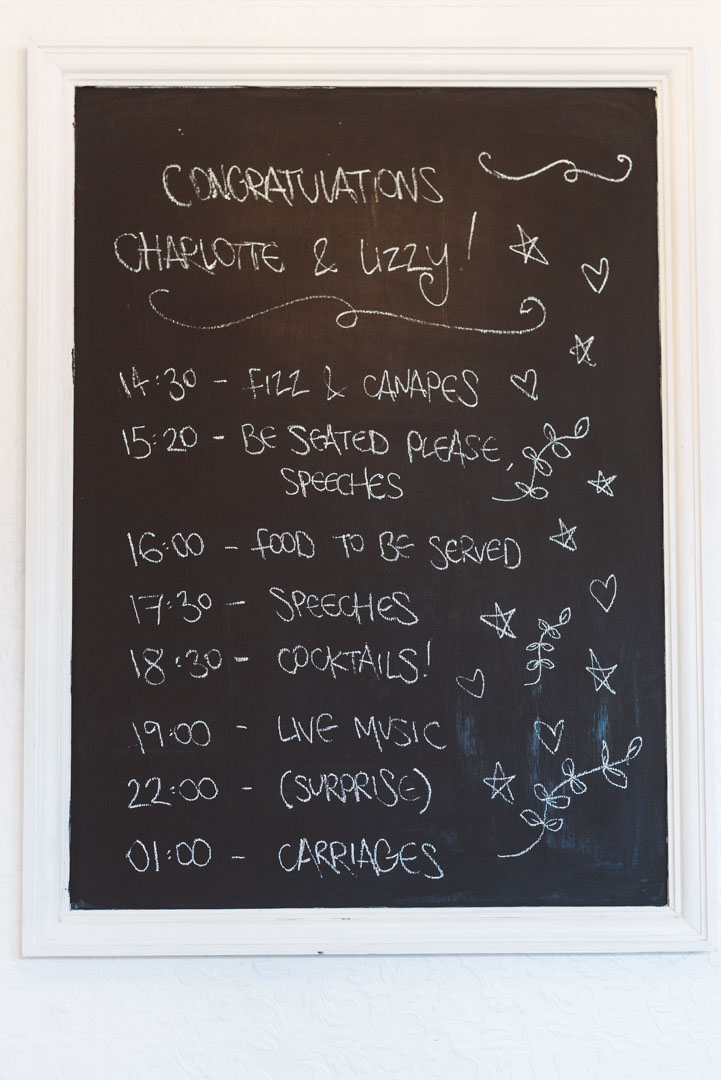 CONGRATULATIONS
CHARLOTTE & LIZZY!
14:30 - FIZZ & CANAPES
15:20 - BE SEATED PLEASE,
SPEECHES
16:00 - FOOD TO BE SERVED
17:30 - SPEECHES
18:30 - COCKTAILS!
19:00 - LIVE MUSIC
22:00 - (SURPRISE)
01:00 - CARRIAGES